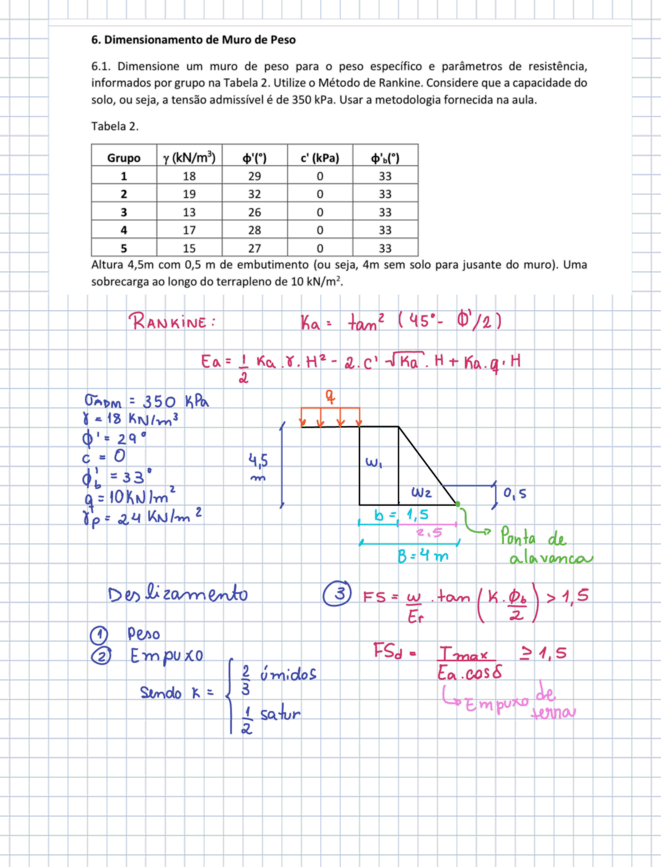 6. Dimensionamento de Muro de Peso
6.1. Dimensione um muro de peso para o peso específico e parâmetros de resistência,
informados por grupo na Tabela 2. Utilize o Método de Rankine. Considere que a capacidade do
solo, ou seja, a tensão admissível é de 350 kPa. Usar a metodologia fornecida na aula.
Tabela 2.
Grupo γ (kN/m³) ϕ'(°) c' (kPa) ϕ'b(°)
1 18 29 0 33
2 19 32 0 33
3 13 26 0 33
4 17 28 0 33
5 15 27 0 33
Altura 4,5m com 0,5 m de embutimento (ou seja, 4m sem solo para jusante do muro). Uma
sobrecarga ao longo do terrapleno de 10 kN/m².
RANKINE: Ka = tan² (45° - ϕ'/2)
Ea = 1/2 Ka.γ.H² - 2.c' √Ka . H + Ka.q.H
σADM = 350 KPa
γ = 18 KN/m³
ϕ' = 29°
c = 0
ϕ'b = 33°
q = 10KN/m²
γp = 24 KN/m²
q
4,5
m
W1
W2
0,5
b = 1,5
2,5
B = 4 m
Ponta de
alavanca
Deslizamento
③ FS = w/Er . tan (K. ϕb/2) > 1,5
① Peso
② Empuxo
FSd = Tmax/Ea.cosδ ≥ 1,5
Sendo K = { 2/3 úmidos
1/2 satur
↳ Empuxo de
terra